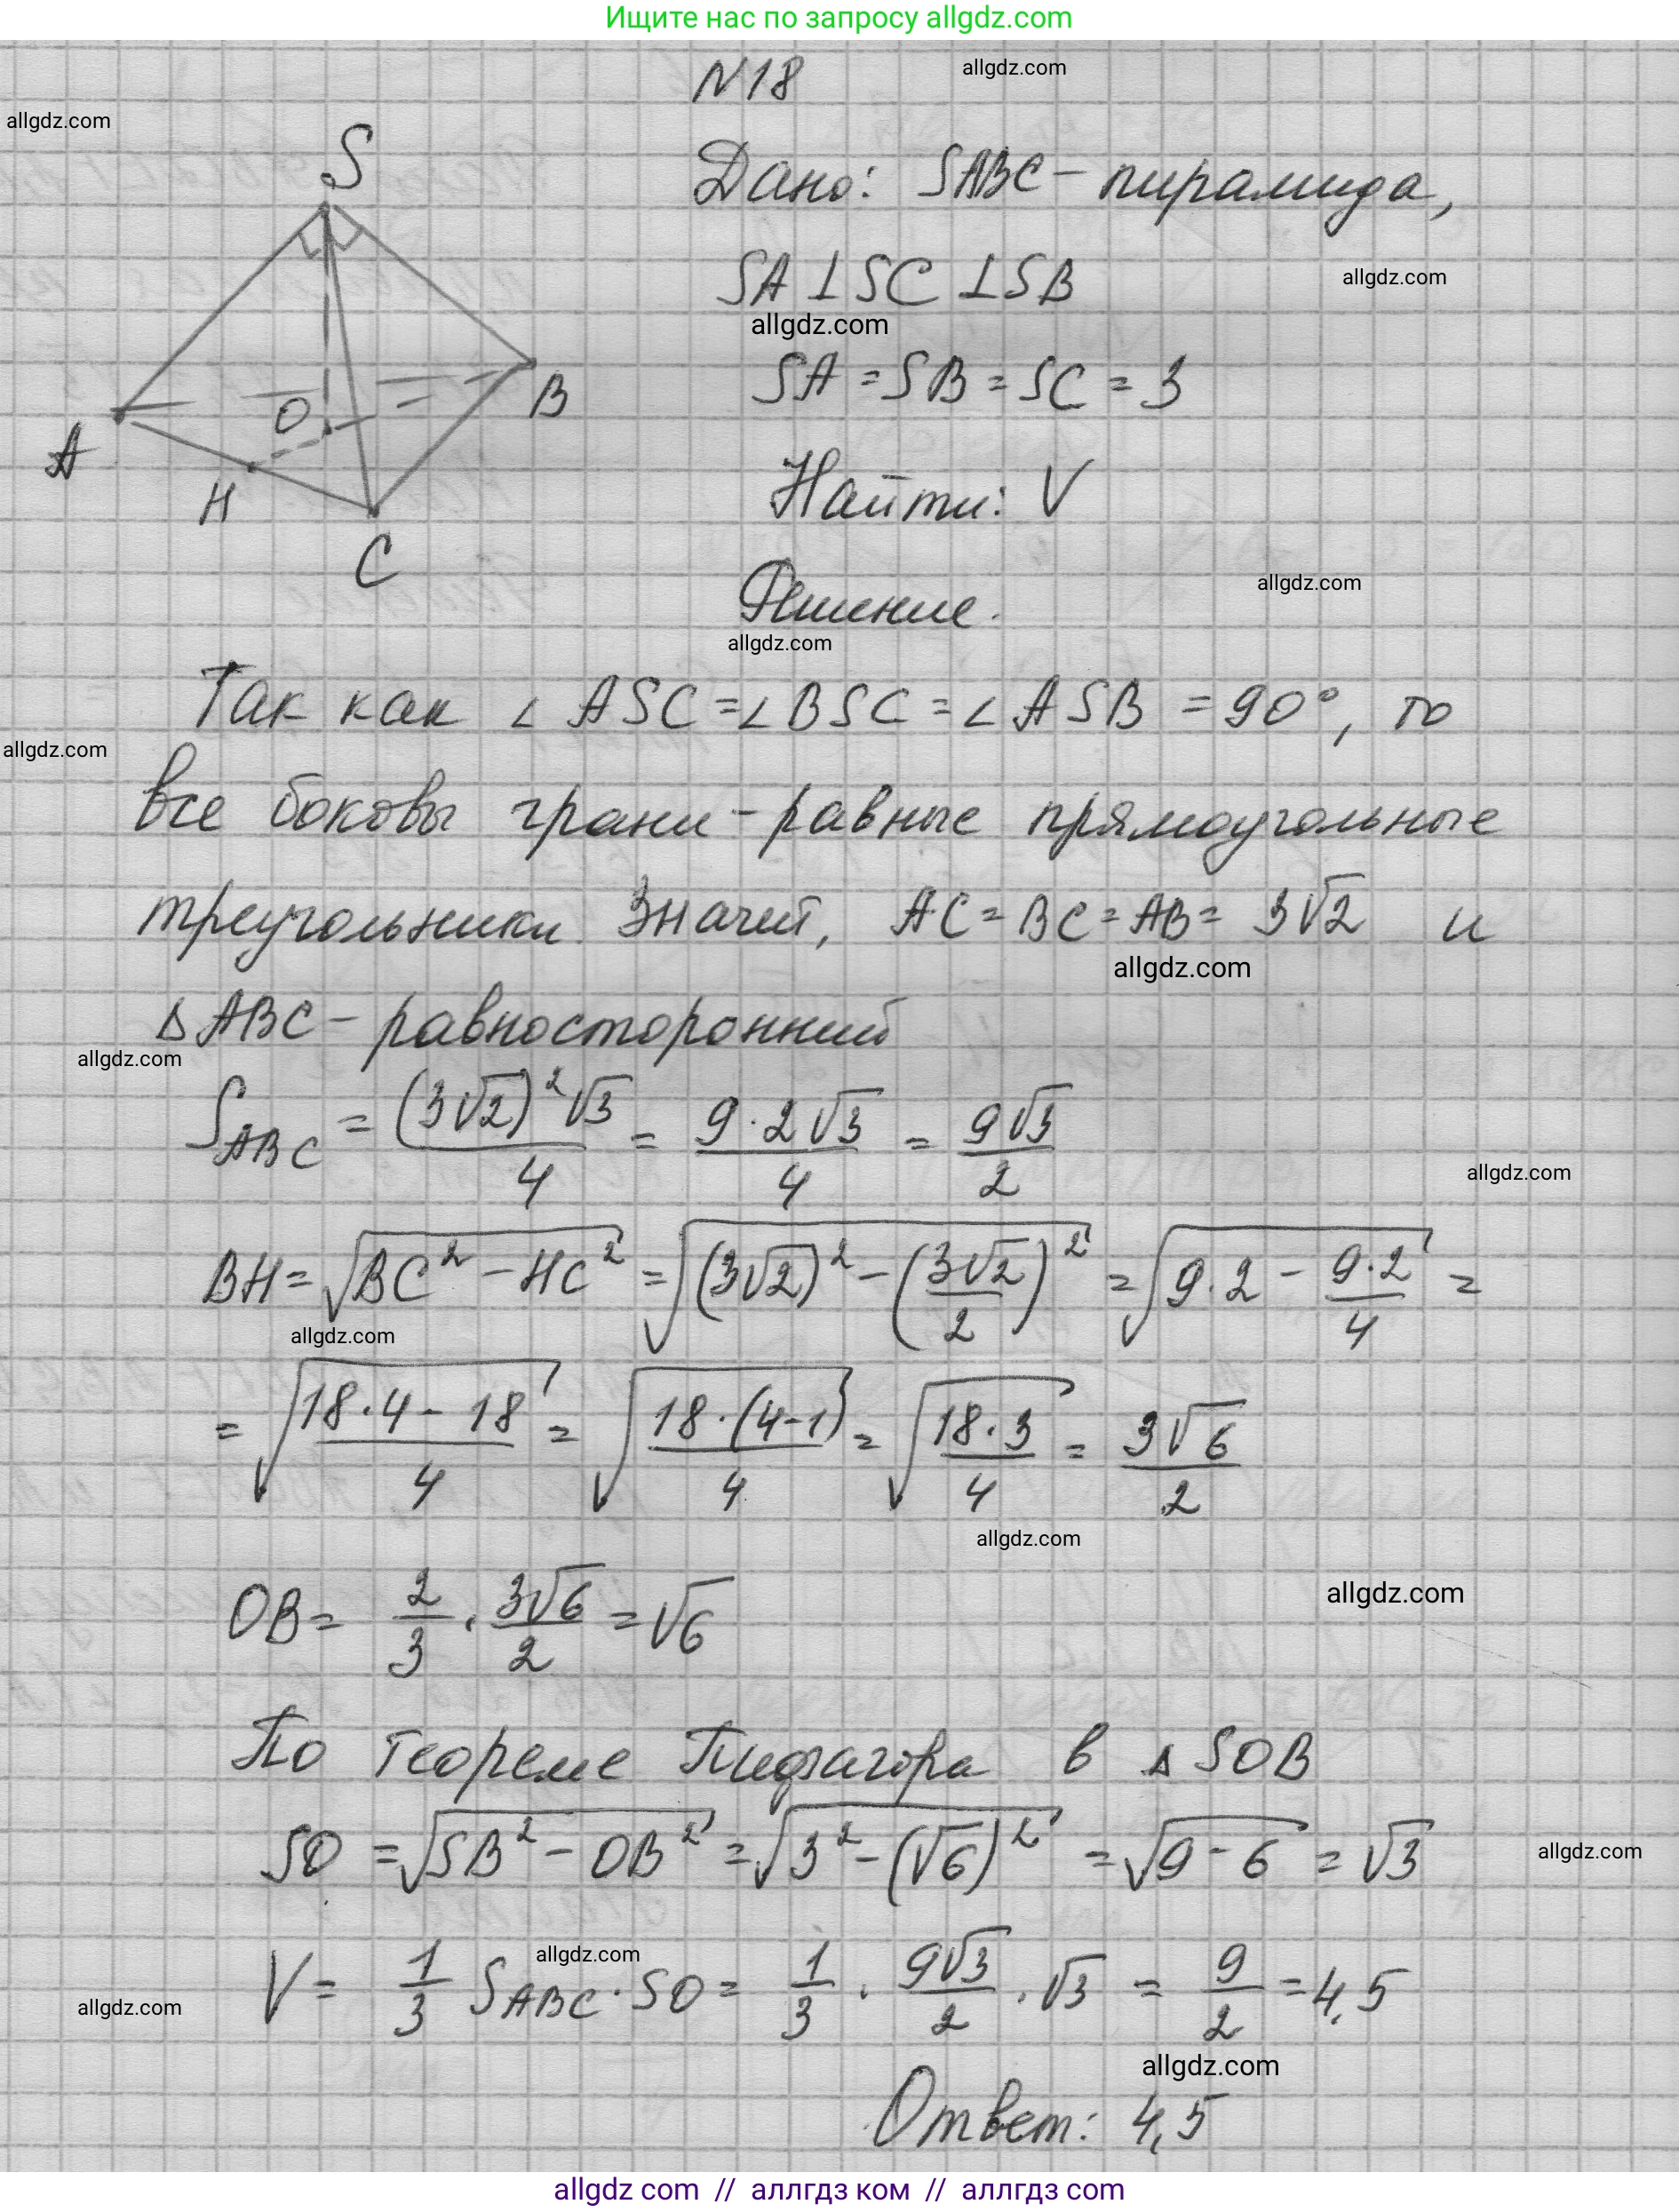 Ищите нас по запросу allgdz.com
N18
allgdz.com
allgdz.com
S
Дано: SABC - пирамида,
SA ⊥ SC ⊥ SB
allgdz.com
allgdz.com
SA = SB = SC = 3
O
B
A
H
Найти: V
C
Решение.
allgdz.com
allgdz.com
Так как ∠ ASC = ∠ BSC = ∠ ASB = 90°, то
allgdz.com
все боковы грани - равные прямоугольные
треугольники. Значит, AC = BC = AB = 3√2 и
allgdz.com
Δ ABC - равносторонний
allgdz.com
S_ABC = (3√2)²√3/4 = 9·2√3/4 = 9√3/2
allgdz.com
BH = √(BC² - HC²) = √((3√2)² - (3√2/2)²) = √(9·2 - 9·2/4) =
allgdz.com
= √((18·4 - 18)/4) = √(18·(4-1)/4) = √(18·3/4) = 3√6/2
allgdz.com
allgdz.com
OB = 2/3 · 3√6/2 = √6
По теореме Пифагора в Δ SOB
SO = √(SB² - OB²) = √(3² - (√6)²) = √(9 - 6) = √3
allgdz.com
allgdz.com
V = 1/3 S_ABC · SO = 1/3 · 9√3/2 · √3 = 9/2 = 4,5
allgdz.com
allgdz.com
Ответ: 4,5
allgdz com // аллгдз ком // аллгдз com